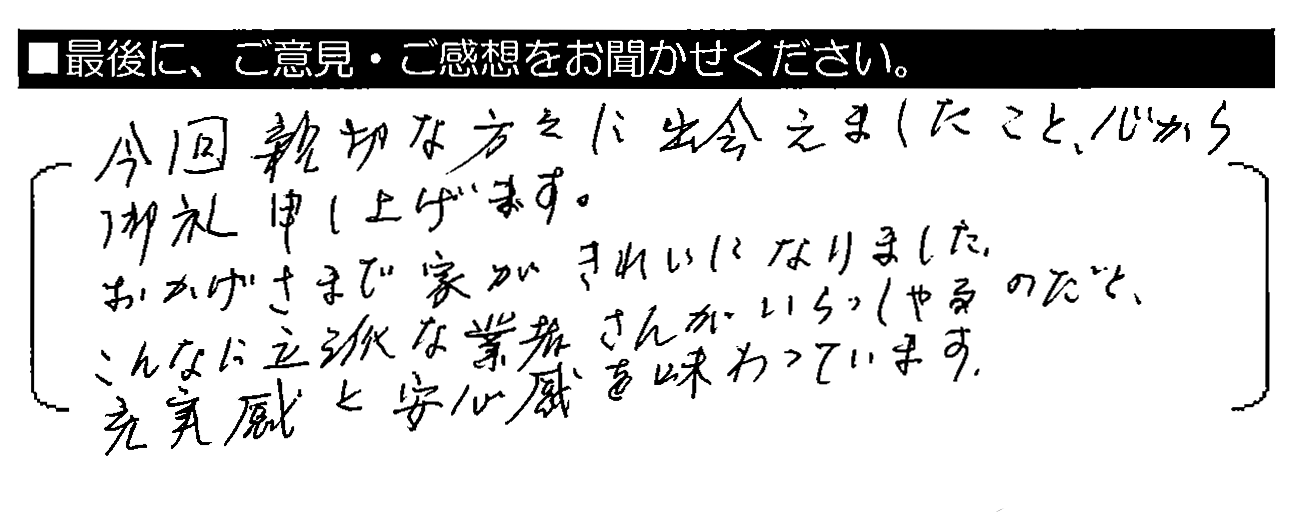 ■最後に、ご意見・ご感想をお聞かせください。
今回親切な方々に出会えましたこと、心から
御礼申し上げます。
おかげさまで家がきれいになりました。
こんなに立派な業者さんがいらっしゃるのだと、
充実感と安心感を味わっています。